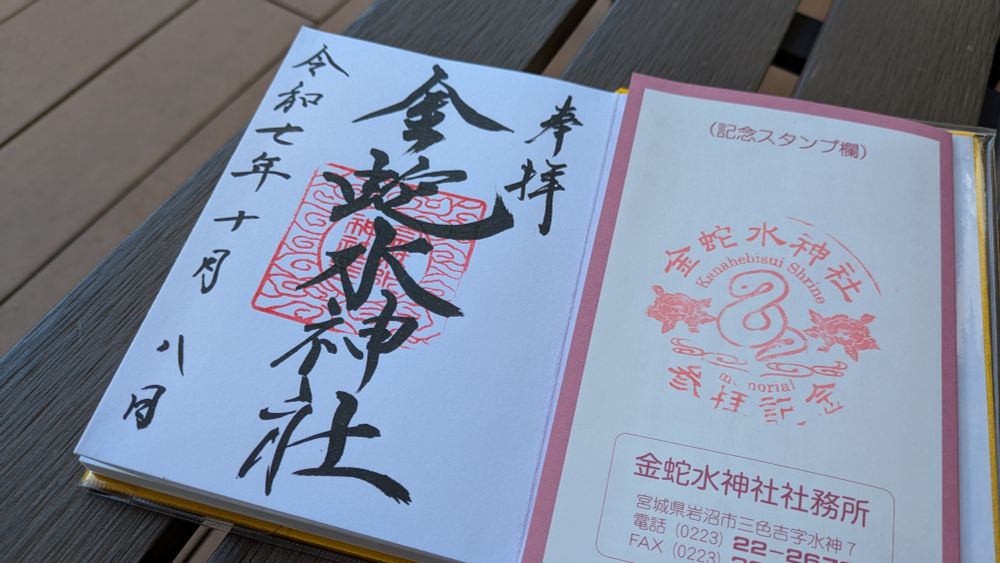 奉拝
金蛇水神社
令和七年十月八日
(記念スタンプ欄)
金蛇水神社
Kanahebisui Shrine
参拝記念
金蛇水神社社務所
宮城県岩沼市三色吉字水神7
電話 (0223) 22-267
FAX (0223)